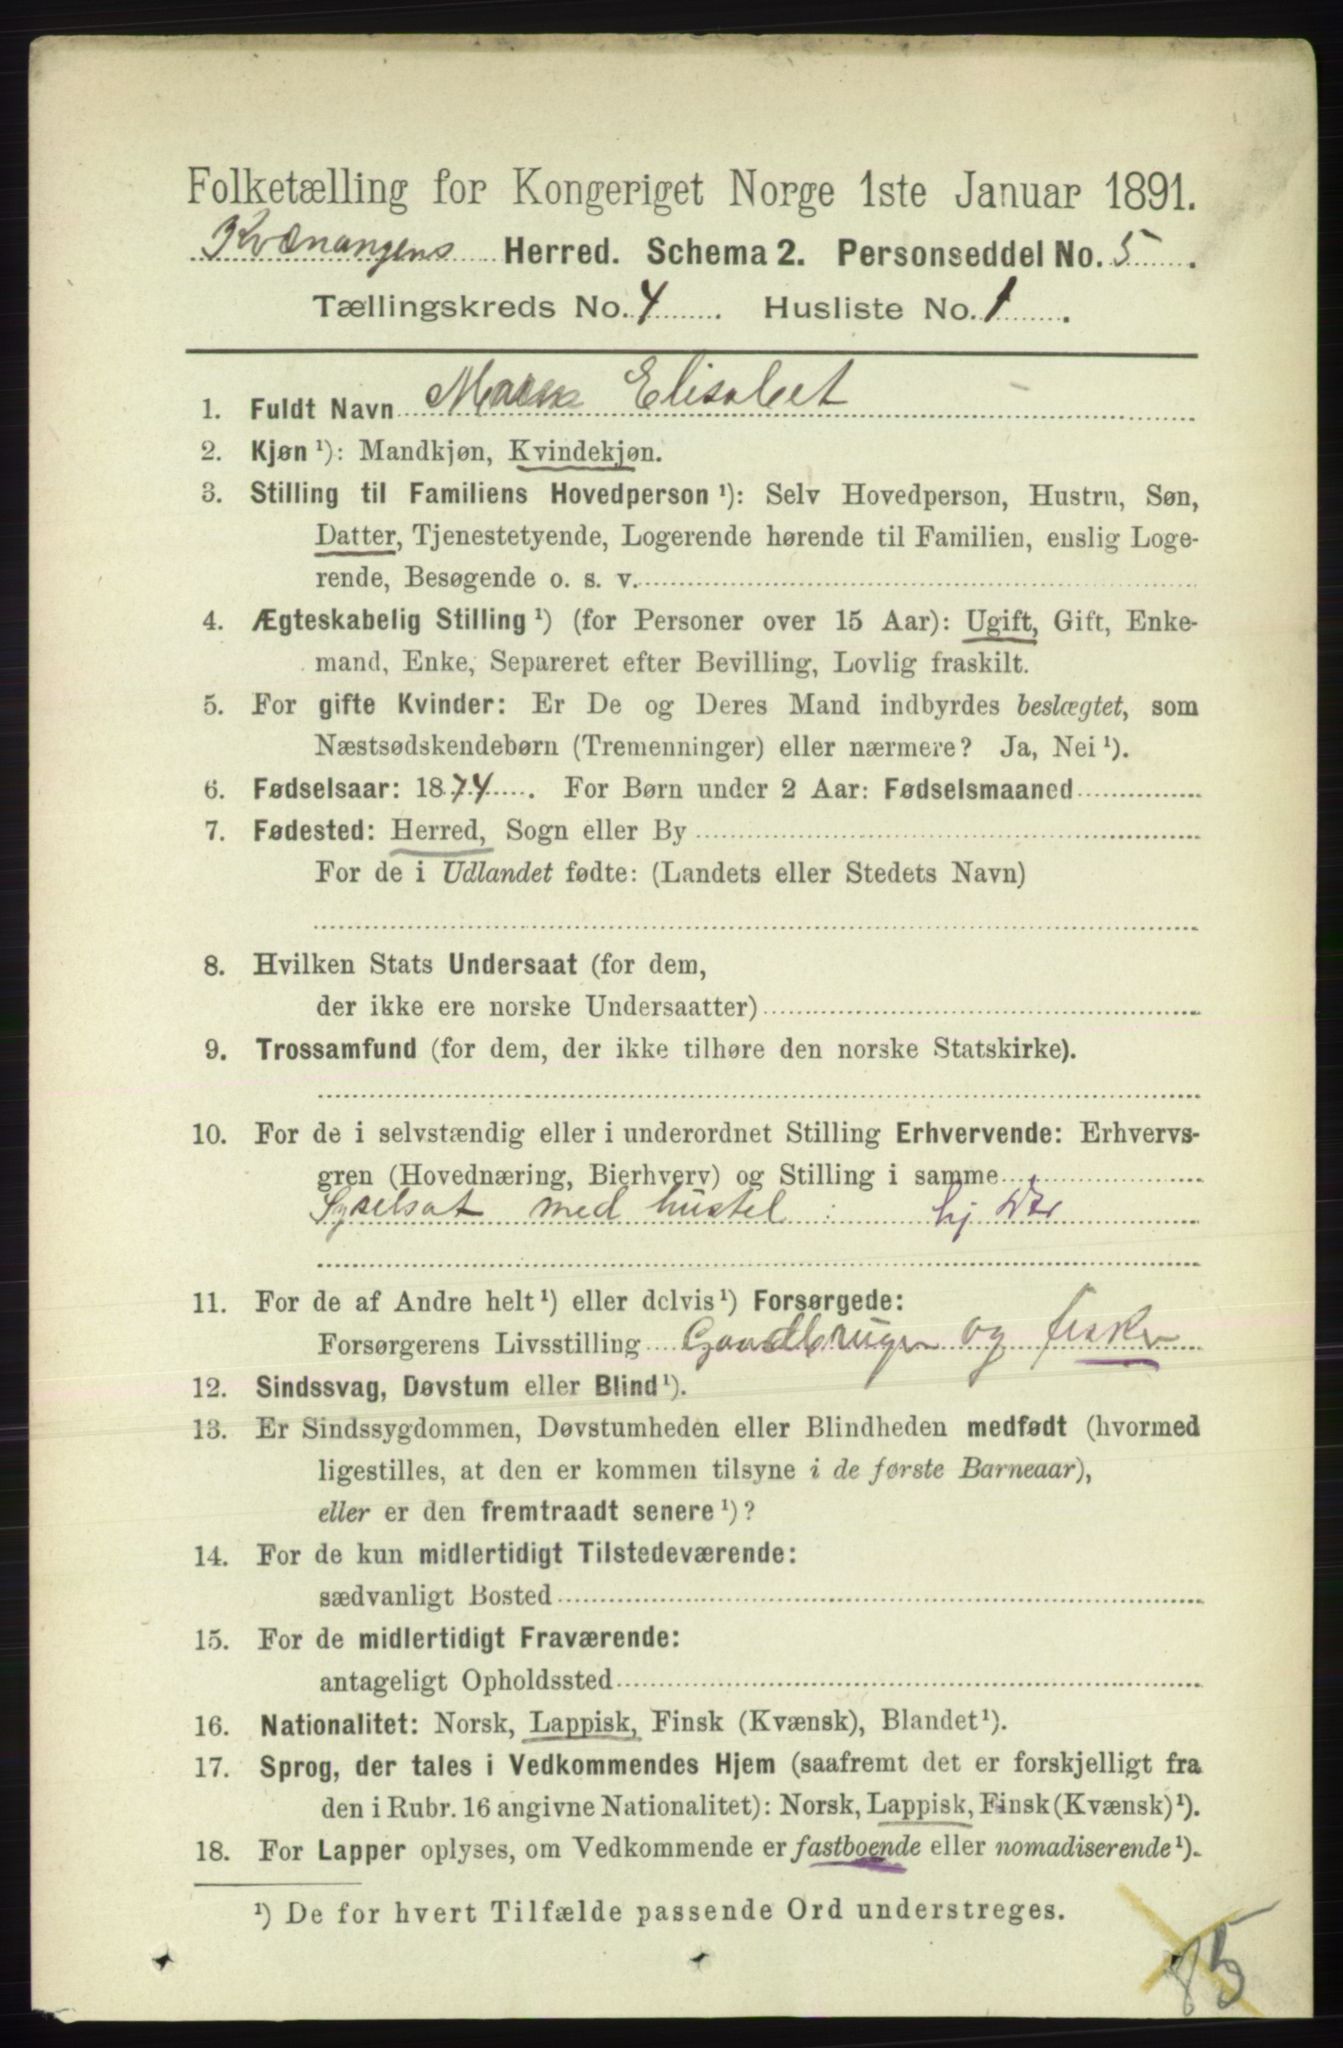 Folketælling for Kongeriget Norge 1ste Januar 1891.
Kvænangens Herred. Schema 2. Personseddel No. 5.
Tællingskreds No. 4. Husliste No. 1.
1. Fuldt Navn Elisabet
2. Kjøn ¹): Mandkjøn, Kvindekjøn.
3. Stilling til Familiens Hovedperson ¹): Selv Hovedperson, Hustru, Søn,
Datter, Tjenestetyende, Logerende hørende til Familien, enslig Loge-
rende, Besøgende o. s. v.
4. Ægteskabelig Stilling ¹) (for Personer over 15 Aar): Ugift, Gift, Enke-
mand, Enke, Separeret efter Bevilling, Lovlig fraskilt.
5. For gifte Kvinder: Er De og Deres Mand indbyrdes beslægtet, som
Næstsødskendebørn (Tremenninger) eller nærmere? Ja, Nei ¹).
6. Fødselsaar: 1874. For Børn under 2 Aar: Fødselsmaaned
7. Fødested: Herred, Sogn eller By
For de i Udlandet fødte: (Landets eller Stedets Navn)
8. Hvilken Stats Undersaat (for dem,
der ikke ere norske Undersaatter)
9. Trossamfund (for dem, der ikke tilhøre den norske Statskirke).
10. For de i selvstændig eller i underordnet Stilling Erhvervende: Erhvervs-
gren (Hovednæring, Bierhverv) og Stilling i samme
Syselsat med hustel : hj dtr
11. For de af Andre helt ¹) eller delvis ¹) Forsørgede:
Forsørgerens Livsstilling Gaardbruger og fisker
12. Sindssvag, Døvstum eller Blind ¹).
13. Er Sindssygdommen, Døvstumheden eller Blindheden medfødt (hvormed
ligestilles, at den er kommen tilsyne i de første Barneaar),
eller er den fremtraadt senere ¹)?
14. For de kun midlertidigt Tilstedeværende:
sædvanligt Bosted
15. For de midlertidigt Fraværende:
antageligt Opholdssted
16. Nationalitet: Norsk, Lappisk, Finsk (Kvænsk), Blandet ¹).
17. Sprog, der tales i Vedkommendes Hjem (saafremt det er forskjelligt fra
den i Rubr. 16 angivne Nationalitet): Norsk, Lappisk, Finsk (Kvænsk) ¹).
18. For Lapper oplyses, om Vedkommende er fastboende eller nomadiserende ¹).
¹) De for hvert Tilfælde passende Ord understreges.
85